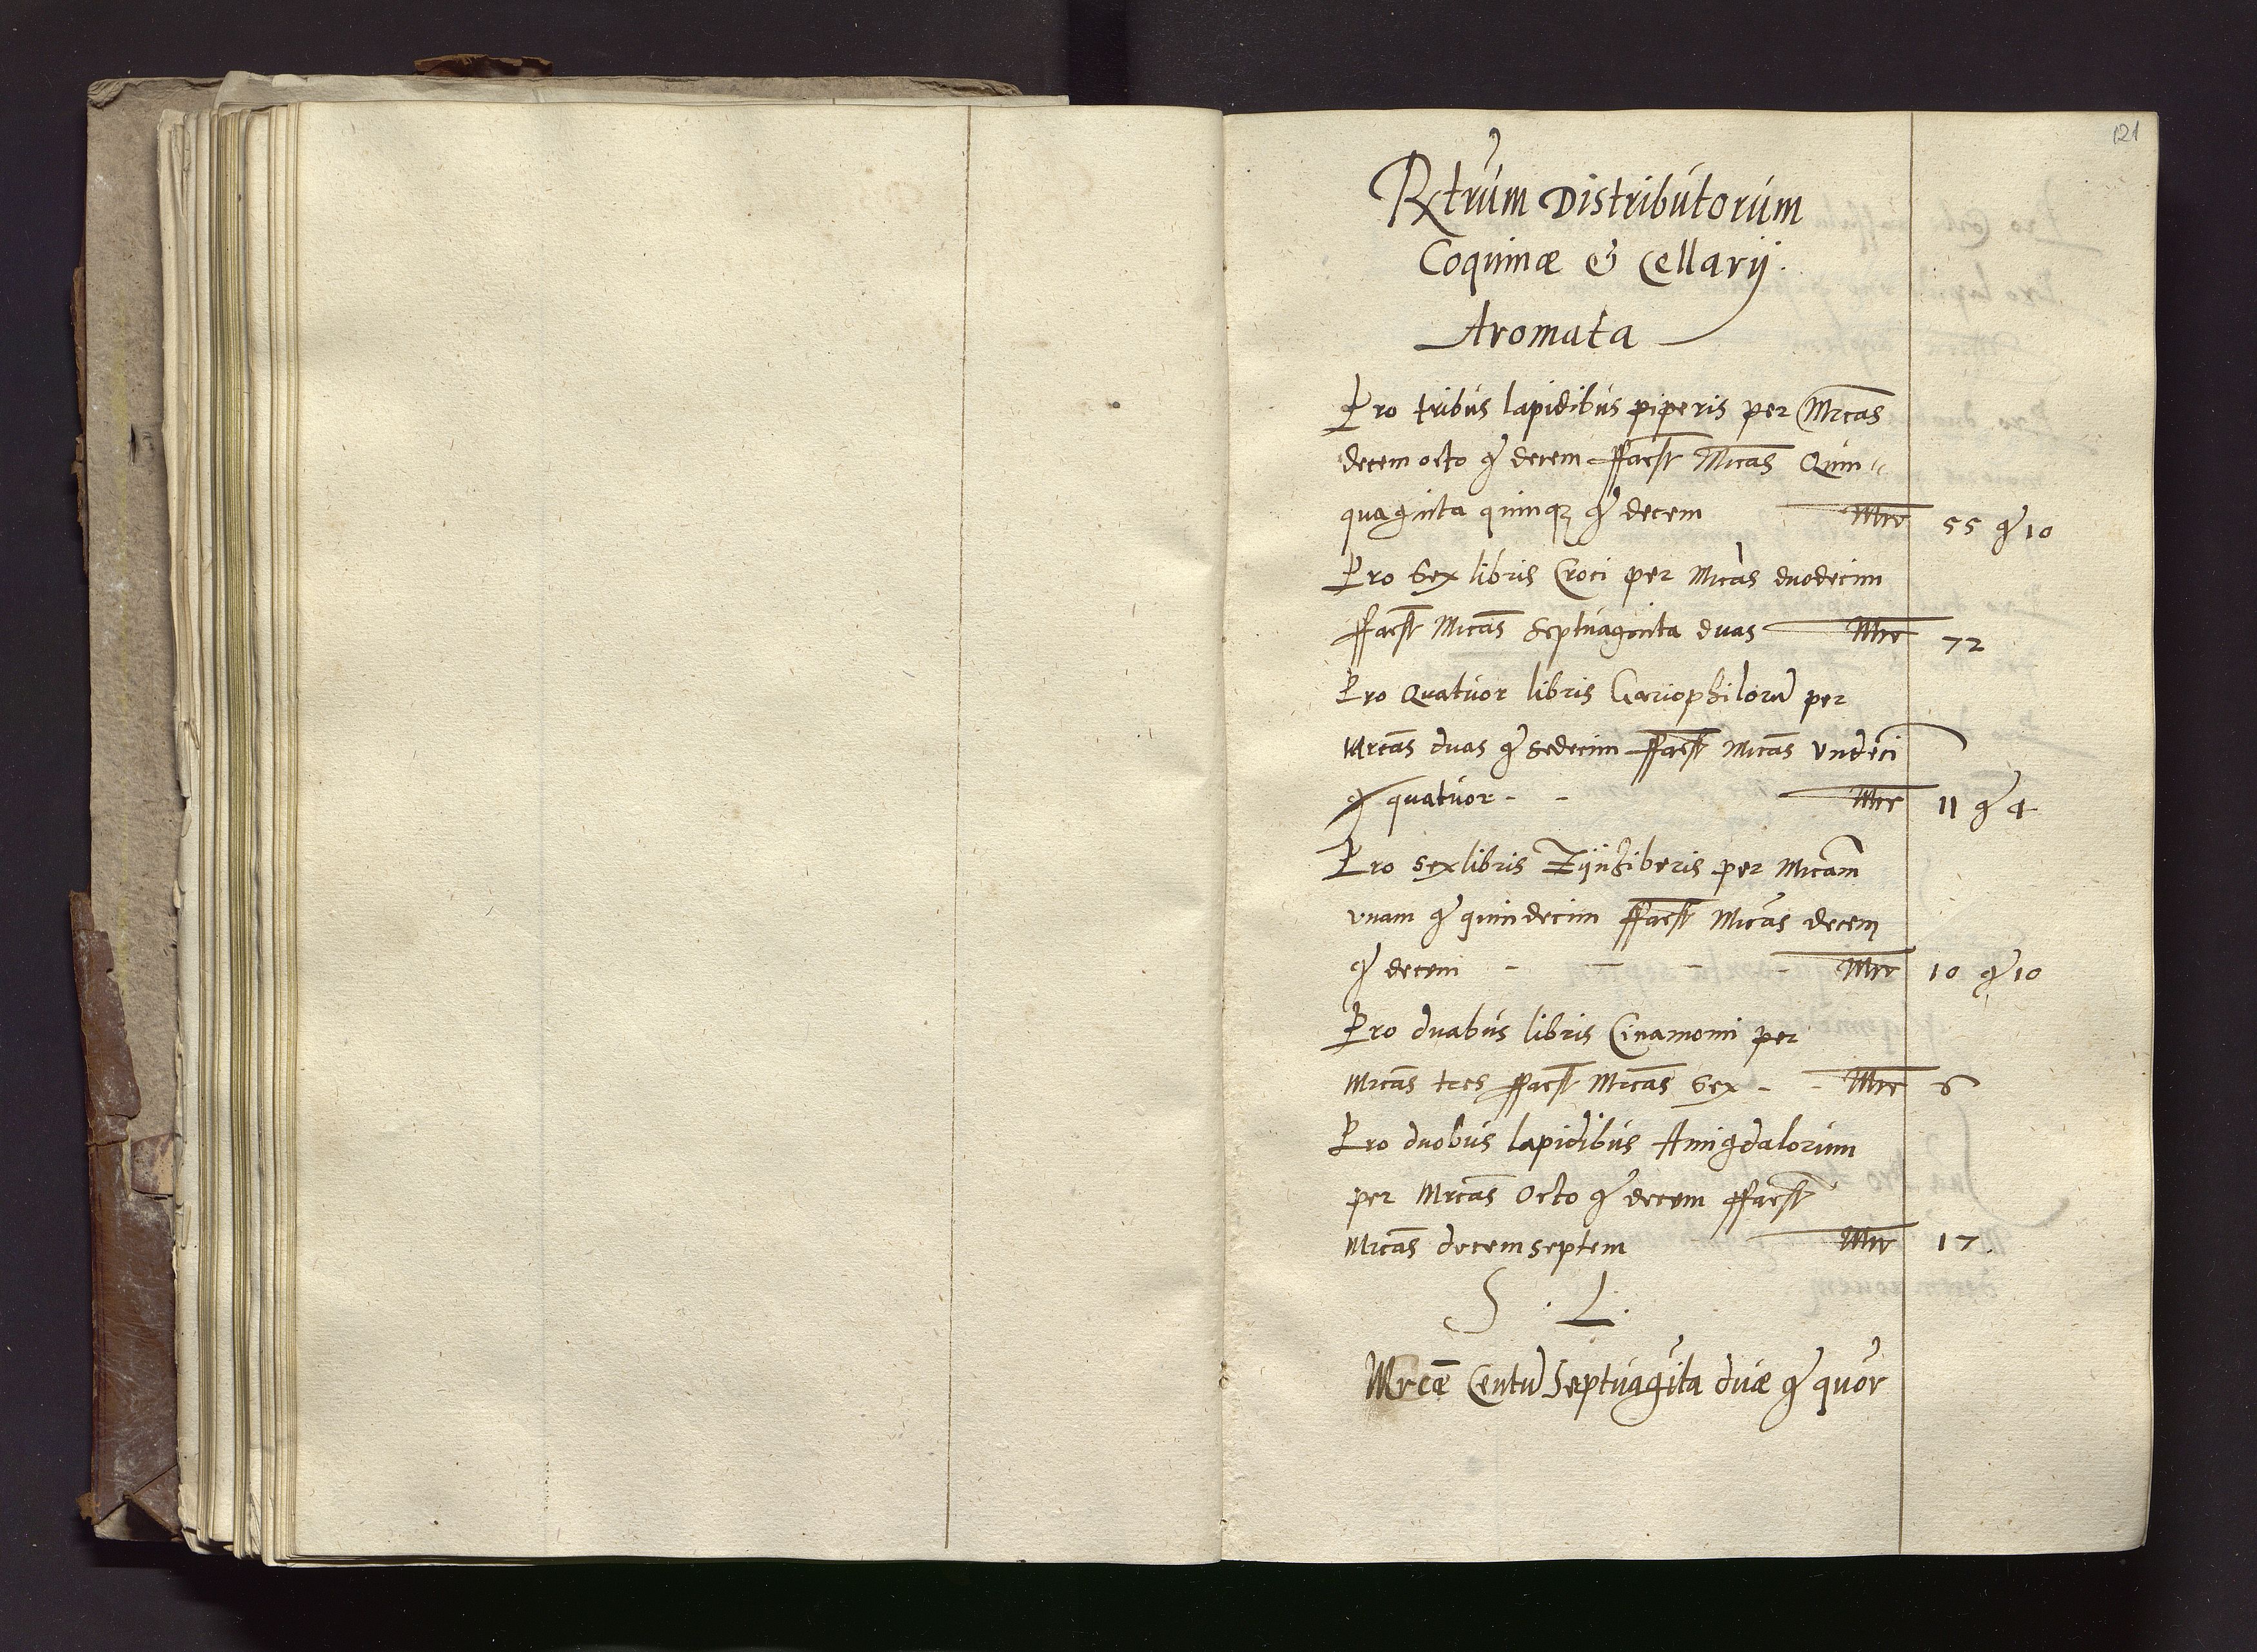 121
Rxtrum Distributorum
Coquinæ & Cellarij.
Aromata
Pro tribus lapidibus piperis per Mrcas
decem octo g decem ffacst Mrcas Quin„
quaginta quinqꝫ g decem Mrc 55 g 10
Pro Sex libris Croci per Mrcas duodecim
ffacst Mrcas Septuaginta duas Mrc 72
Pro Quatuor libris Gariophiloru per
Mrcas duas g sedecim ffacst Mrcas Vndeci
g quatuor - - Mrc 11 g 4
Pro sex libris Zijnziberis per Mrcam
vnam g quindecim ffacst Mrcas decem
g decem - - - - Mrc 10 g 10
Pro duabus libris Cinamomi per
Mrcas tres ffacst Mrcas Sex - - Mrc 6
Pro duobus lapidibus Amigdalorum
per Mrcas Octo g decem ffacst
Mrcas decem septem Mrc 17.
S . L.
Mrcæ Centu Septuagita duæ g quor